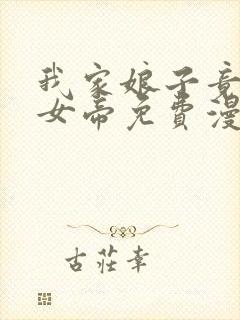 我家娘子竟
女帝免費漫
古莊幸